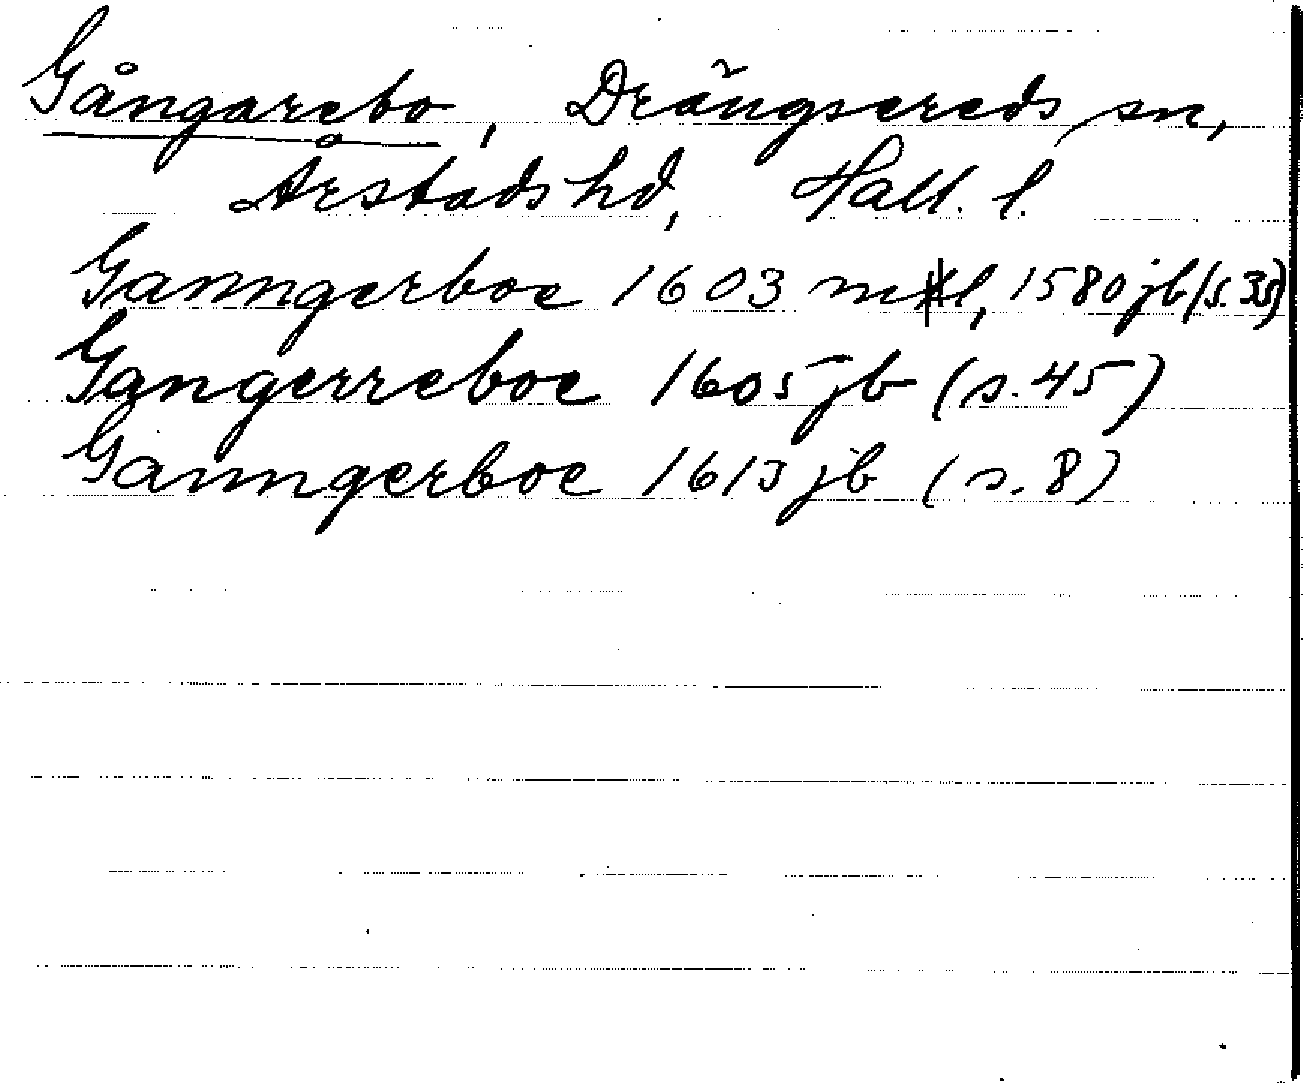 Gångarebo, Drängsereds sn,
Årstads hd, Hall. l.
Ganngerboe 1603 mtl, 1580 jb (s. 35)
Gangerreboe 1605 jb (s. 45)
Ganngerboe 1613 jb (s. 8)